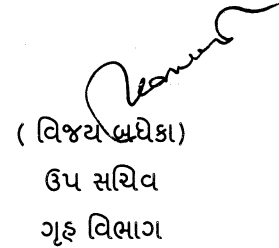 ( વિજય બધેકા)
ઉપ સચિવ
ગૃહ વિભાગ